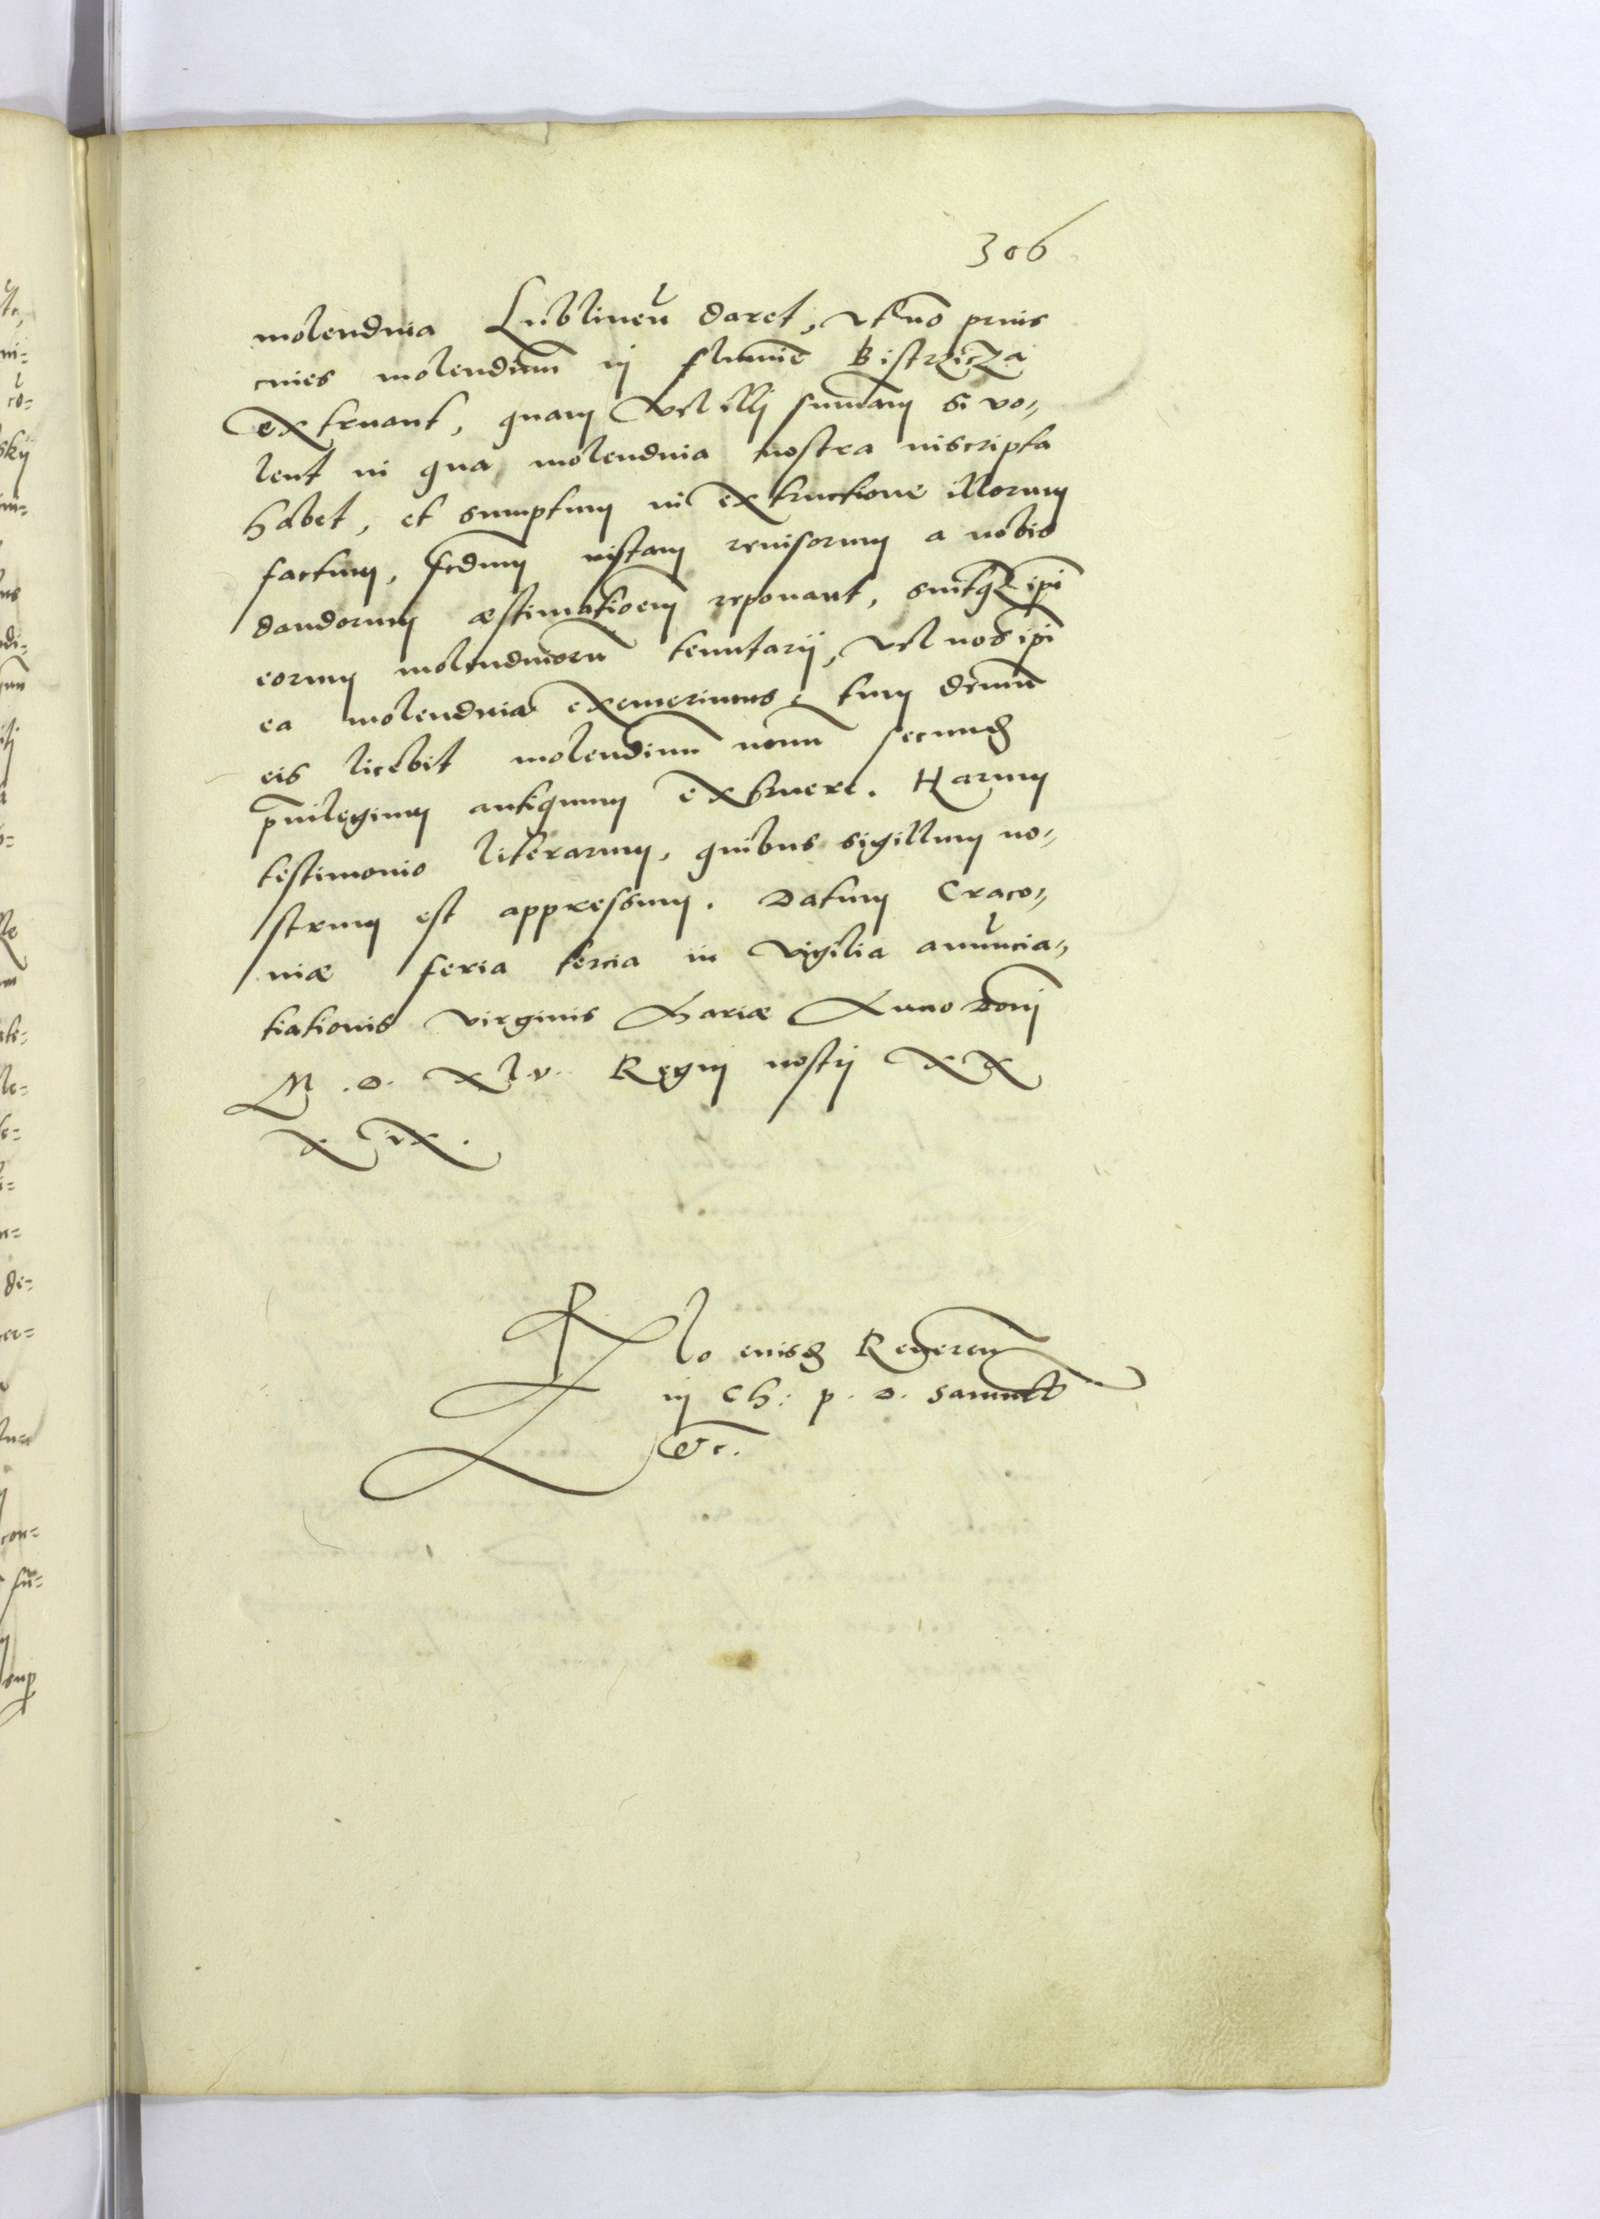 306
molendina Lublinen̄ daret, ut nō prius
cives molendinū in flumīe Bistrzicza
extruant, quam vel illi summam si vo-
lent in qua molendina nostra inscripta
habet, et sumptum in extructione illorum
factum, scdum iustam revisorum a nobis
dandorum æstimationem reponant, sintq3 ip̄i
eorum molendinorū tenutarii, vel nos ip̄i
ea molendina exemerimus, tum demū
eis licebit molendinū novū secund
p̄vilegium antiquum extruere. Harum
testimonio literarum, quibus sigillum no-
strum est appressum. Datum Craco-
viæ feria tercia in vigilia anūncia-
tiationis virginis Mariæ Anno Domī
M. D. xl.v. Regni nostri XX
X IX.
Rlo eiusd Reveren̄
in Ch: p. D. Samuelis
etc.